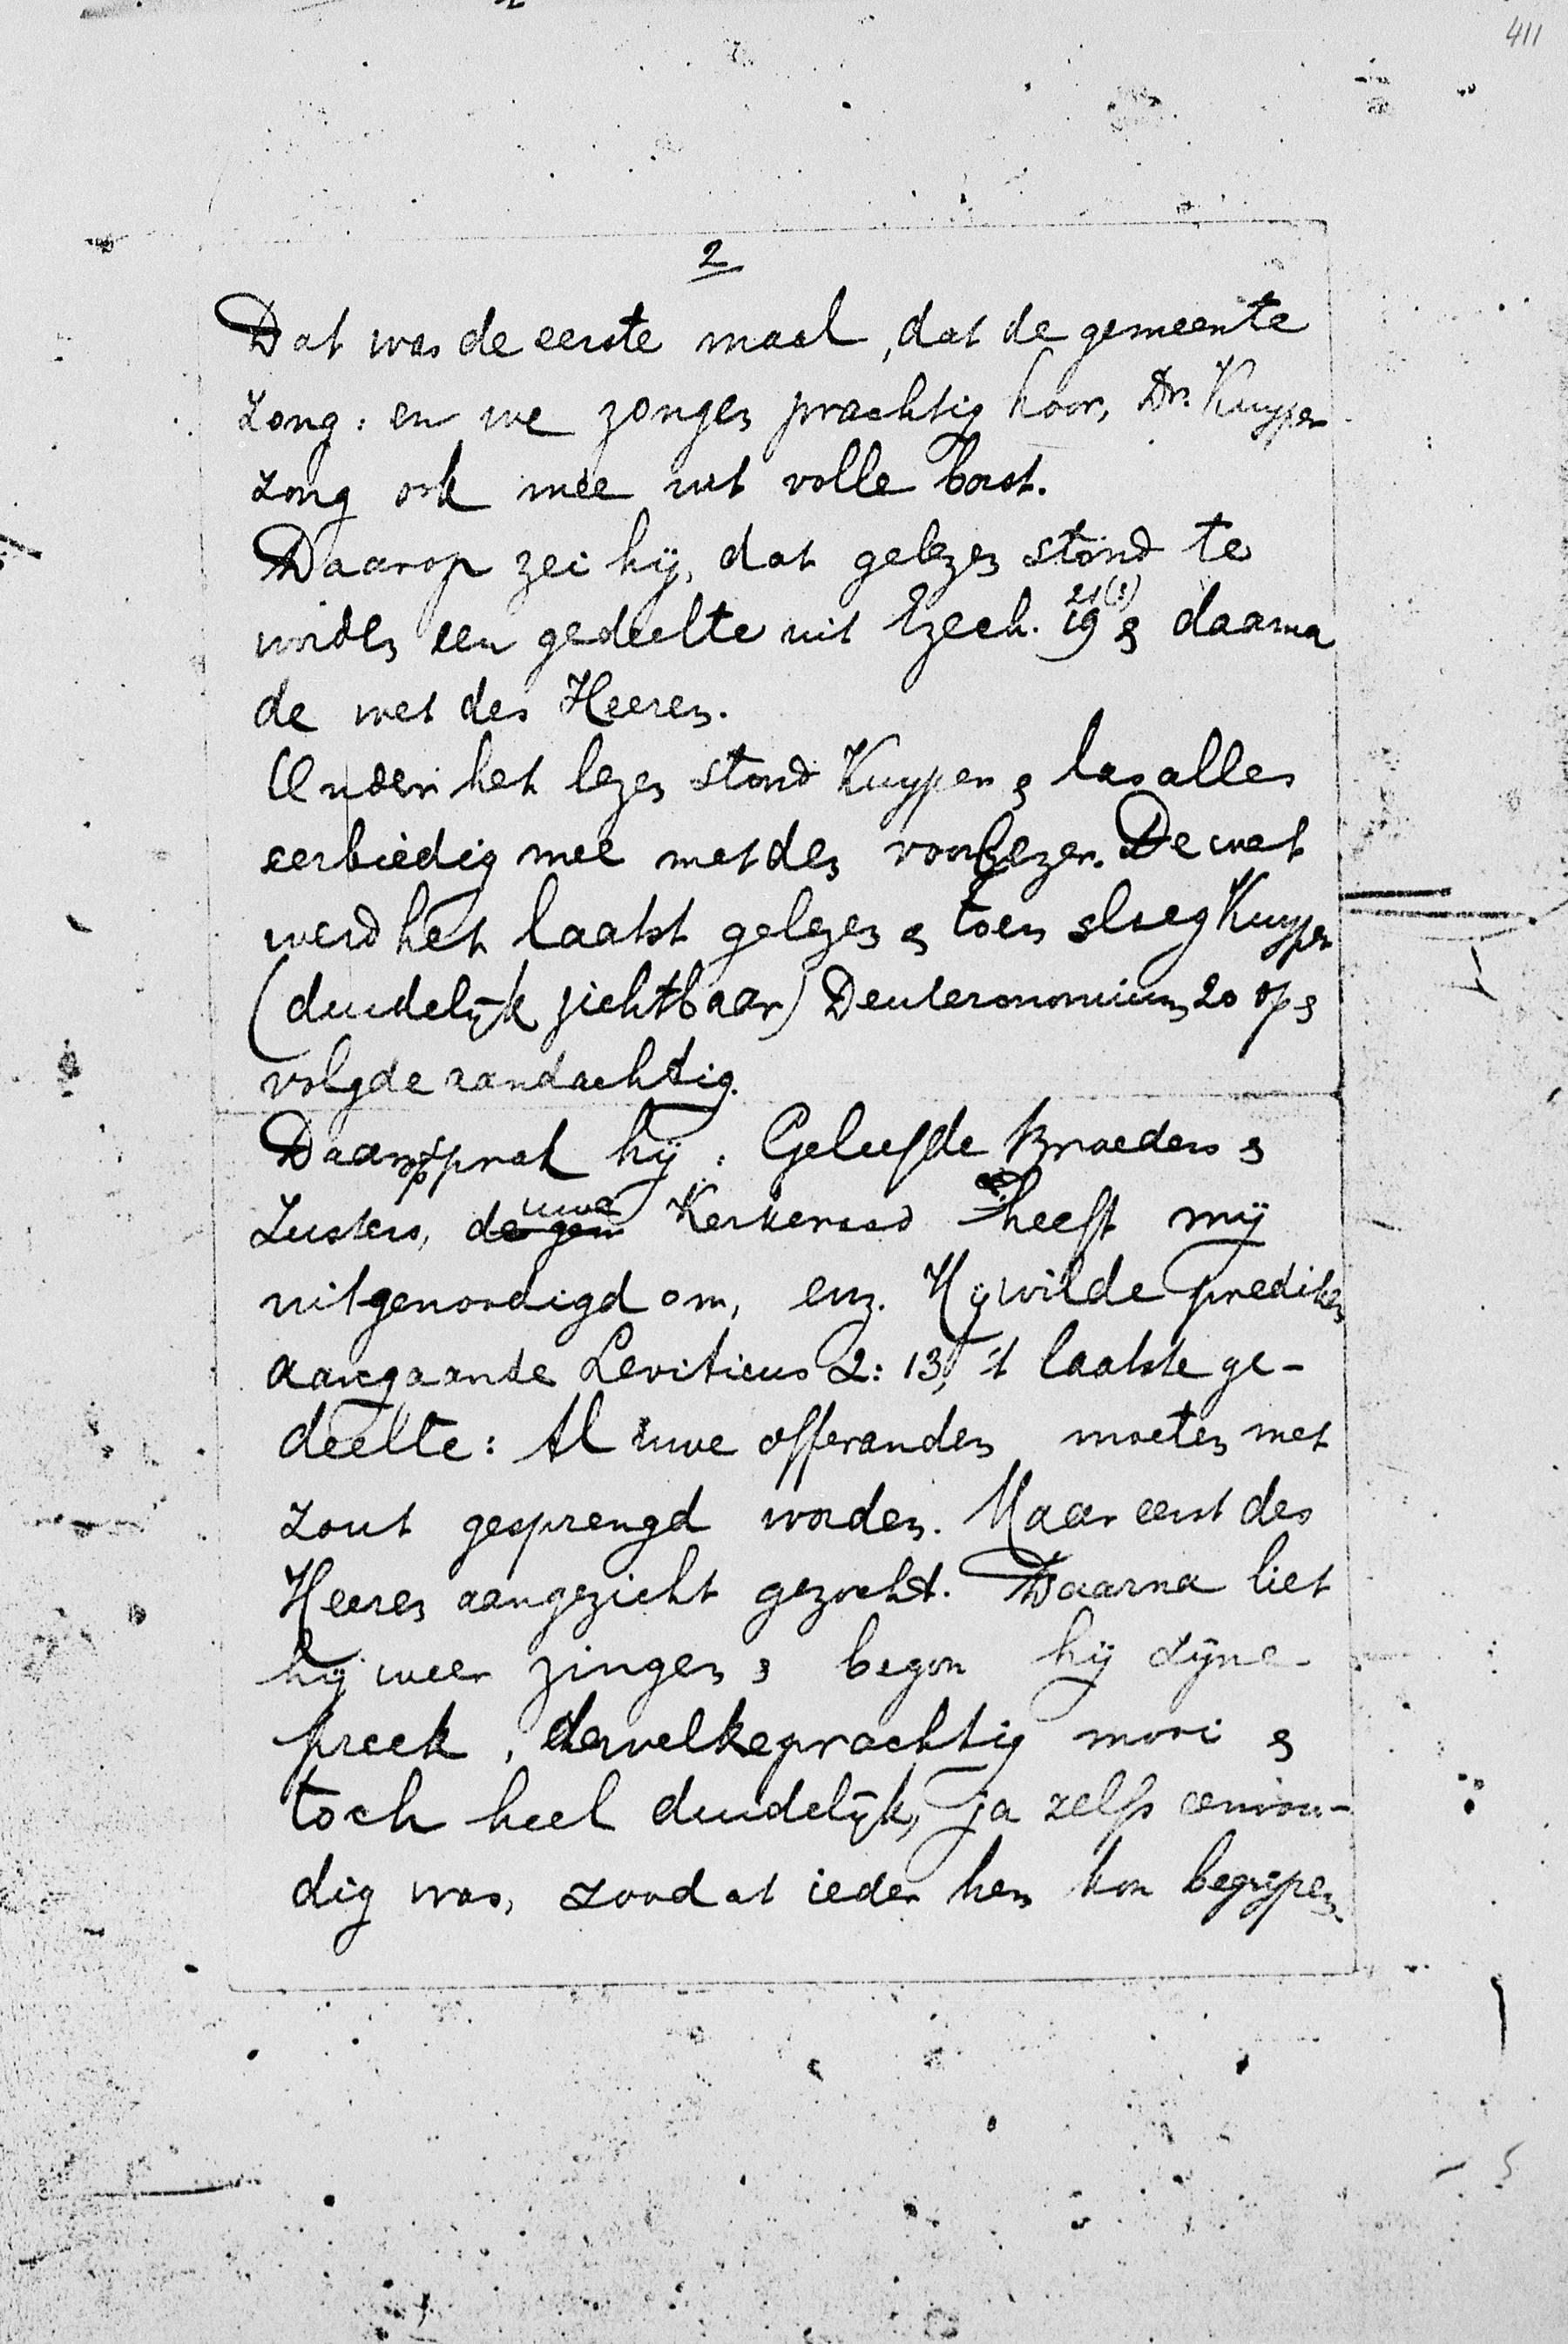 411
2
Dat was de eerste maal, dat de gemeente
zong: en we zongen prachtig hoor, Dr. Kuyper
zong ook mee uit volle borst.
Daarop zei hij, dat gelezen stond te
21(?)
worden een gedeelte uit Ezech. 19 & daarna
de wet des Heeren.
Onder het lezen stond Kuyper & las alles
eerbiedig mee met den voorlezer. De wet
werd het laatst gelezen & toen sloeg Kuyper
(duidelijk zichtbaar) Deuteronomium 20 op &
volgde aandachtig.
Daarop sprak hij: Geliefde Broeders &
uwe
Zusters, de gem Kerkeraad heeft mij
uitgenoodigd om, enz. Hij wilde prediken
aangaande Leviticus 2: 13, 't laatste ge-
deelte: Al uwe offeranden moeten met
zout gesprengd worden. Maar eerst des
Heeren aangezicht gezocht. Daarna liet
hij weer zingen & begon hij zijne
preek, dewelke prachtig mooi &
toch heel duidelijk, ja zelfs eenvou-
dig was, zoodat ieder hem kon begrijpen.